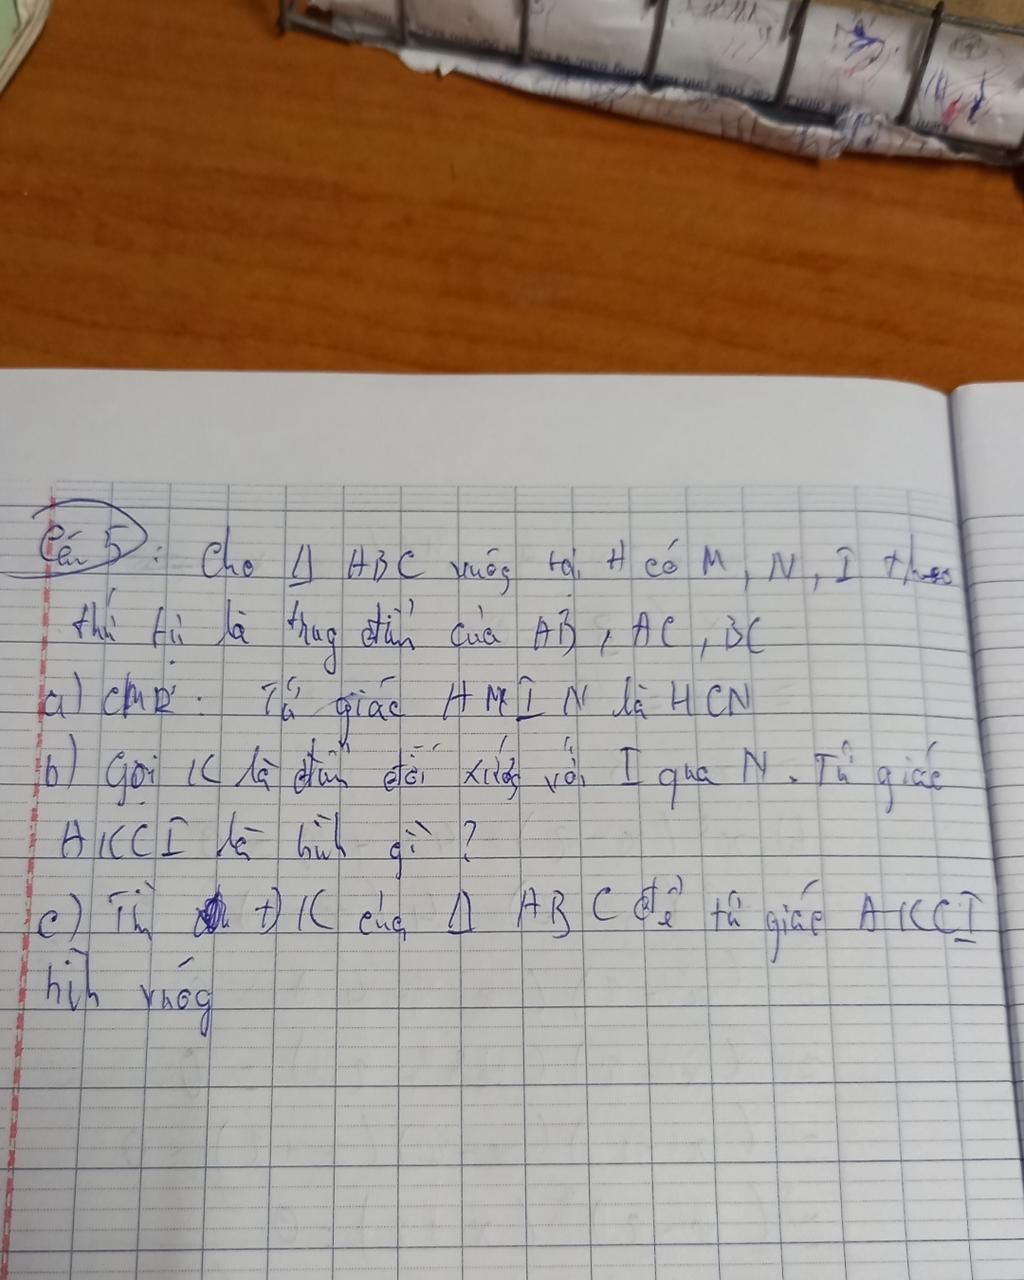 Câu 5: Cho Δ ABC vuôg tại A có M, N, I theo
thứ tự là trug điểm của AB, AC, BC
a) CMR: Tứ giác AMIN là HCN
b) Gọi K là điểm đối xứng với I qua N. Tứ giác
AKCI là hìh gì?
c) Tìm đK của Δ ABC để tứ giác AKCI
hìh vuôg